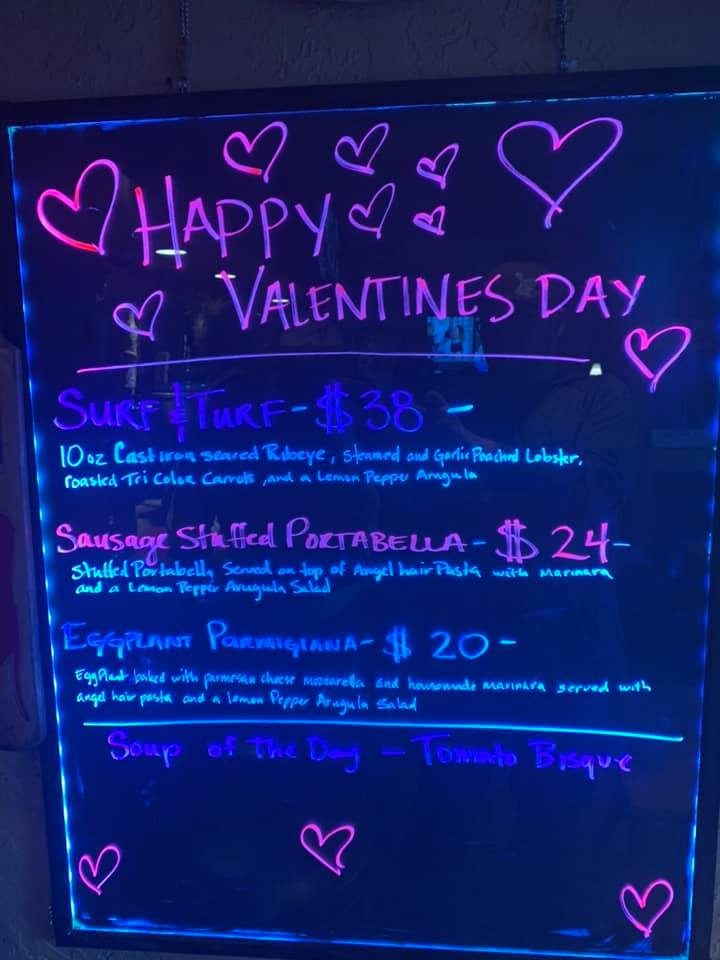 HAPPY
VALENTINES DAY
SURF & TURF - $38 -
10 oz Cast iron seared Ribeye, Steamed and Garlic Poached Lobster,
roasted Tri Color Carrots, and a Lemon Pepper Arugula
Sausage Stuffed PORTABELLA - $24 -
Stuffed Portabella Served on top of Angel hair Pasta with Marinara
and a Lemon Pepper Arugula Salad
EGGPLANT PARMIGIANA - $20 -
EggPlant baked with parmesan cheese mozzarella and housemade marinara served with
angel hair pasta and a lemon Pepper Arugula Salad
Soup of The Day - Tomato Bisque